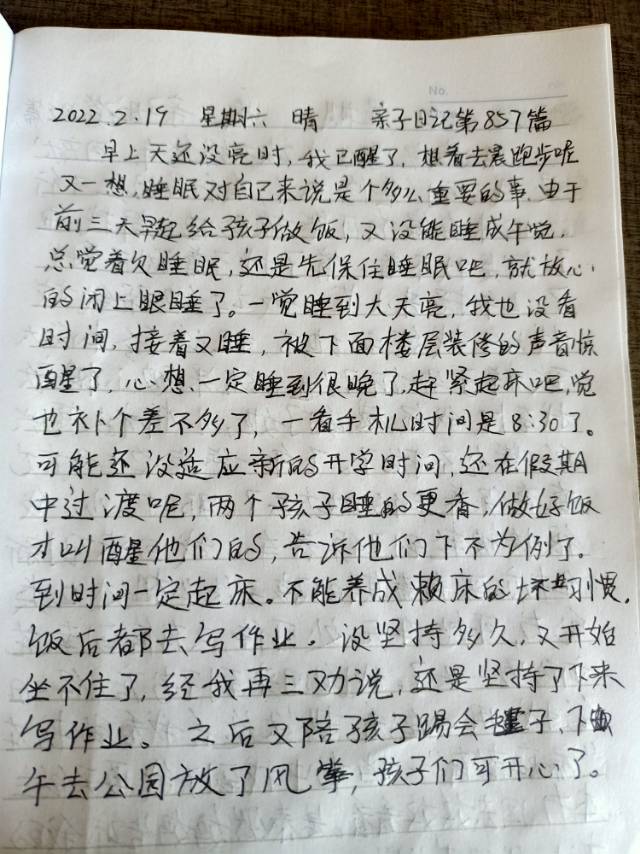 No.
2022.2.19 星期六 晴 亲子日记第857篇
早上天还没亮时,我已醒了,想着去晨跑步呢
又一想,睡眠对自己来说是个多么重要的事.由于
前三天早起给孩子做饭,又没能睡成午觉,
总觉着欠睡眠,还是先保住睡眠吧,就放心
的闭上眼睡了。一觉睡到大天亮,我也没看
时间,接着又睡,被下面楼层装修的声音惊
醒了,心想,一定睡到很晚了,赶紧起床吧,觉
也补个差不多了,一看手机时间是8:30了。
可能还没适应新的开学时间,还在假期
中过渡呢,两个孩子睡的更香,做好饭
才叫醒他们的,告诉他们下不为例了.
到时间一定起床。不能养成赖床的坏习惯,
饭后都去写作业.没坚持多久,又开始
坐不住了,经我再三劝说,还是坚持了下来
写作业。之后又陪孩子踢会毽子,下
午去公园放了风筝,孩子们可开心了。